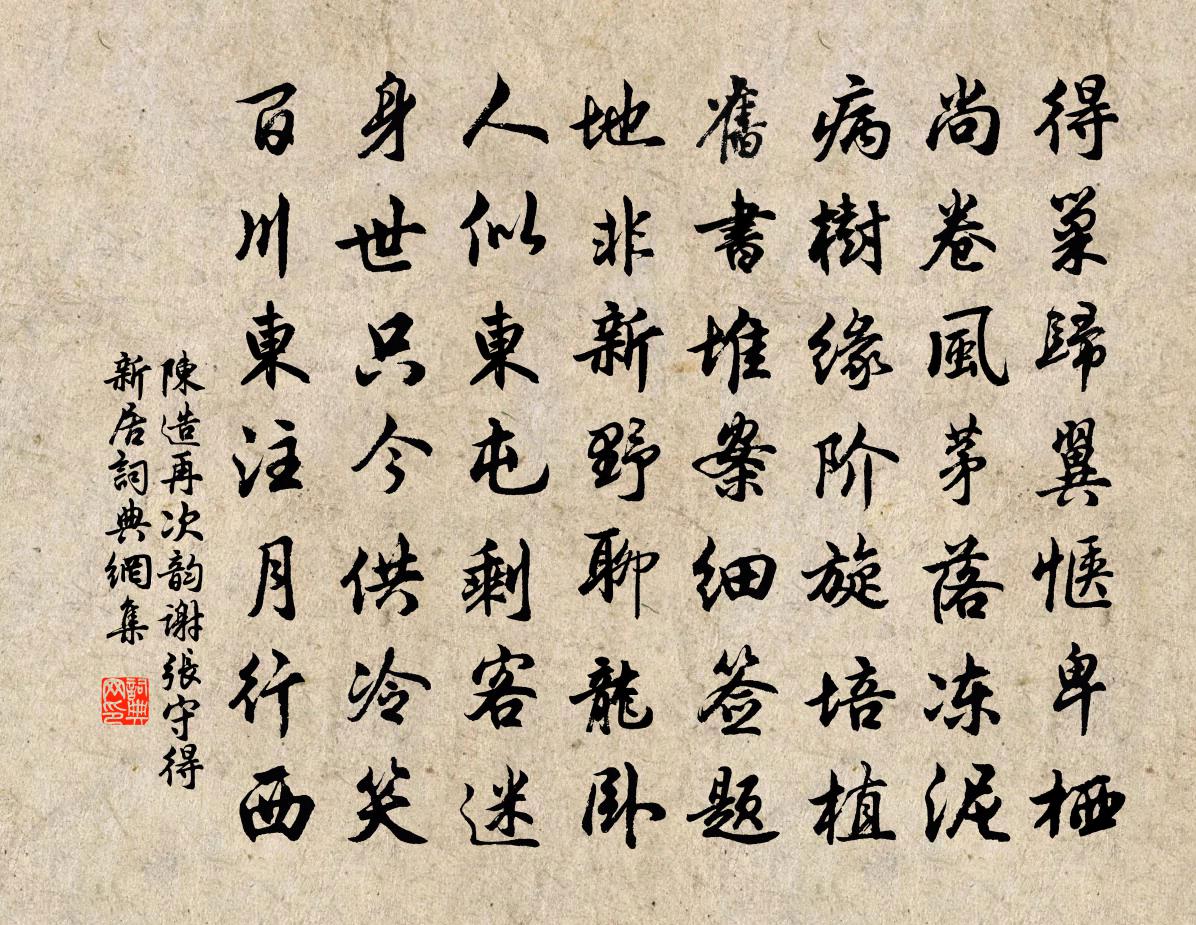 得巢歸翼惬卑栖
尚卷風茅落冻泥
病樹缘阶旋培植
舊書堆案细签题
地非新野聊龍卧
人似東屯剩客迷
身世只今供冷笑
百川東注月行西
陳造再次韵谢張守得
新居詞典網集
詞典
网印